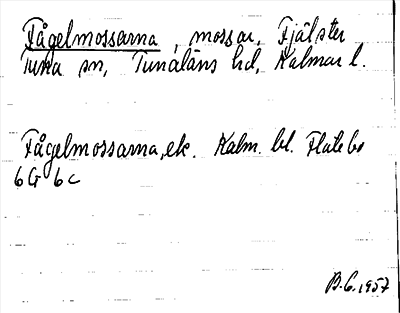 Fågelmossarna, mossar, Fjälster
Tuna sn, Tunaläns hd, Kalmar l.
Fågelmossarna, ek. Kalm. bl. Flatebo
6G 6c
B.G. 1957